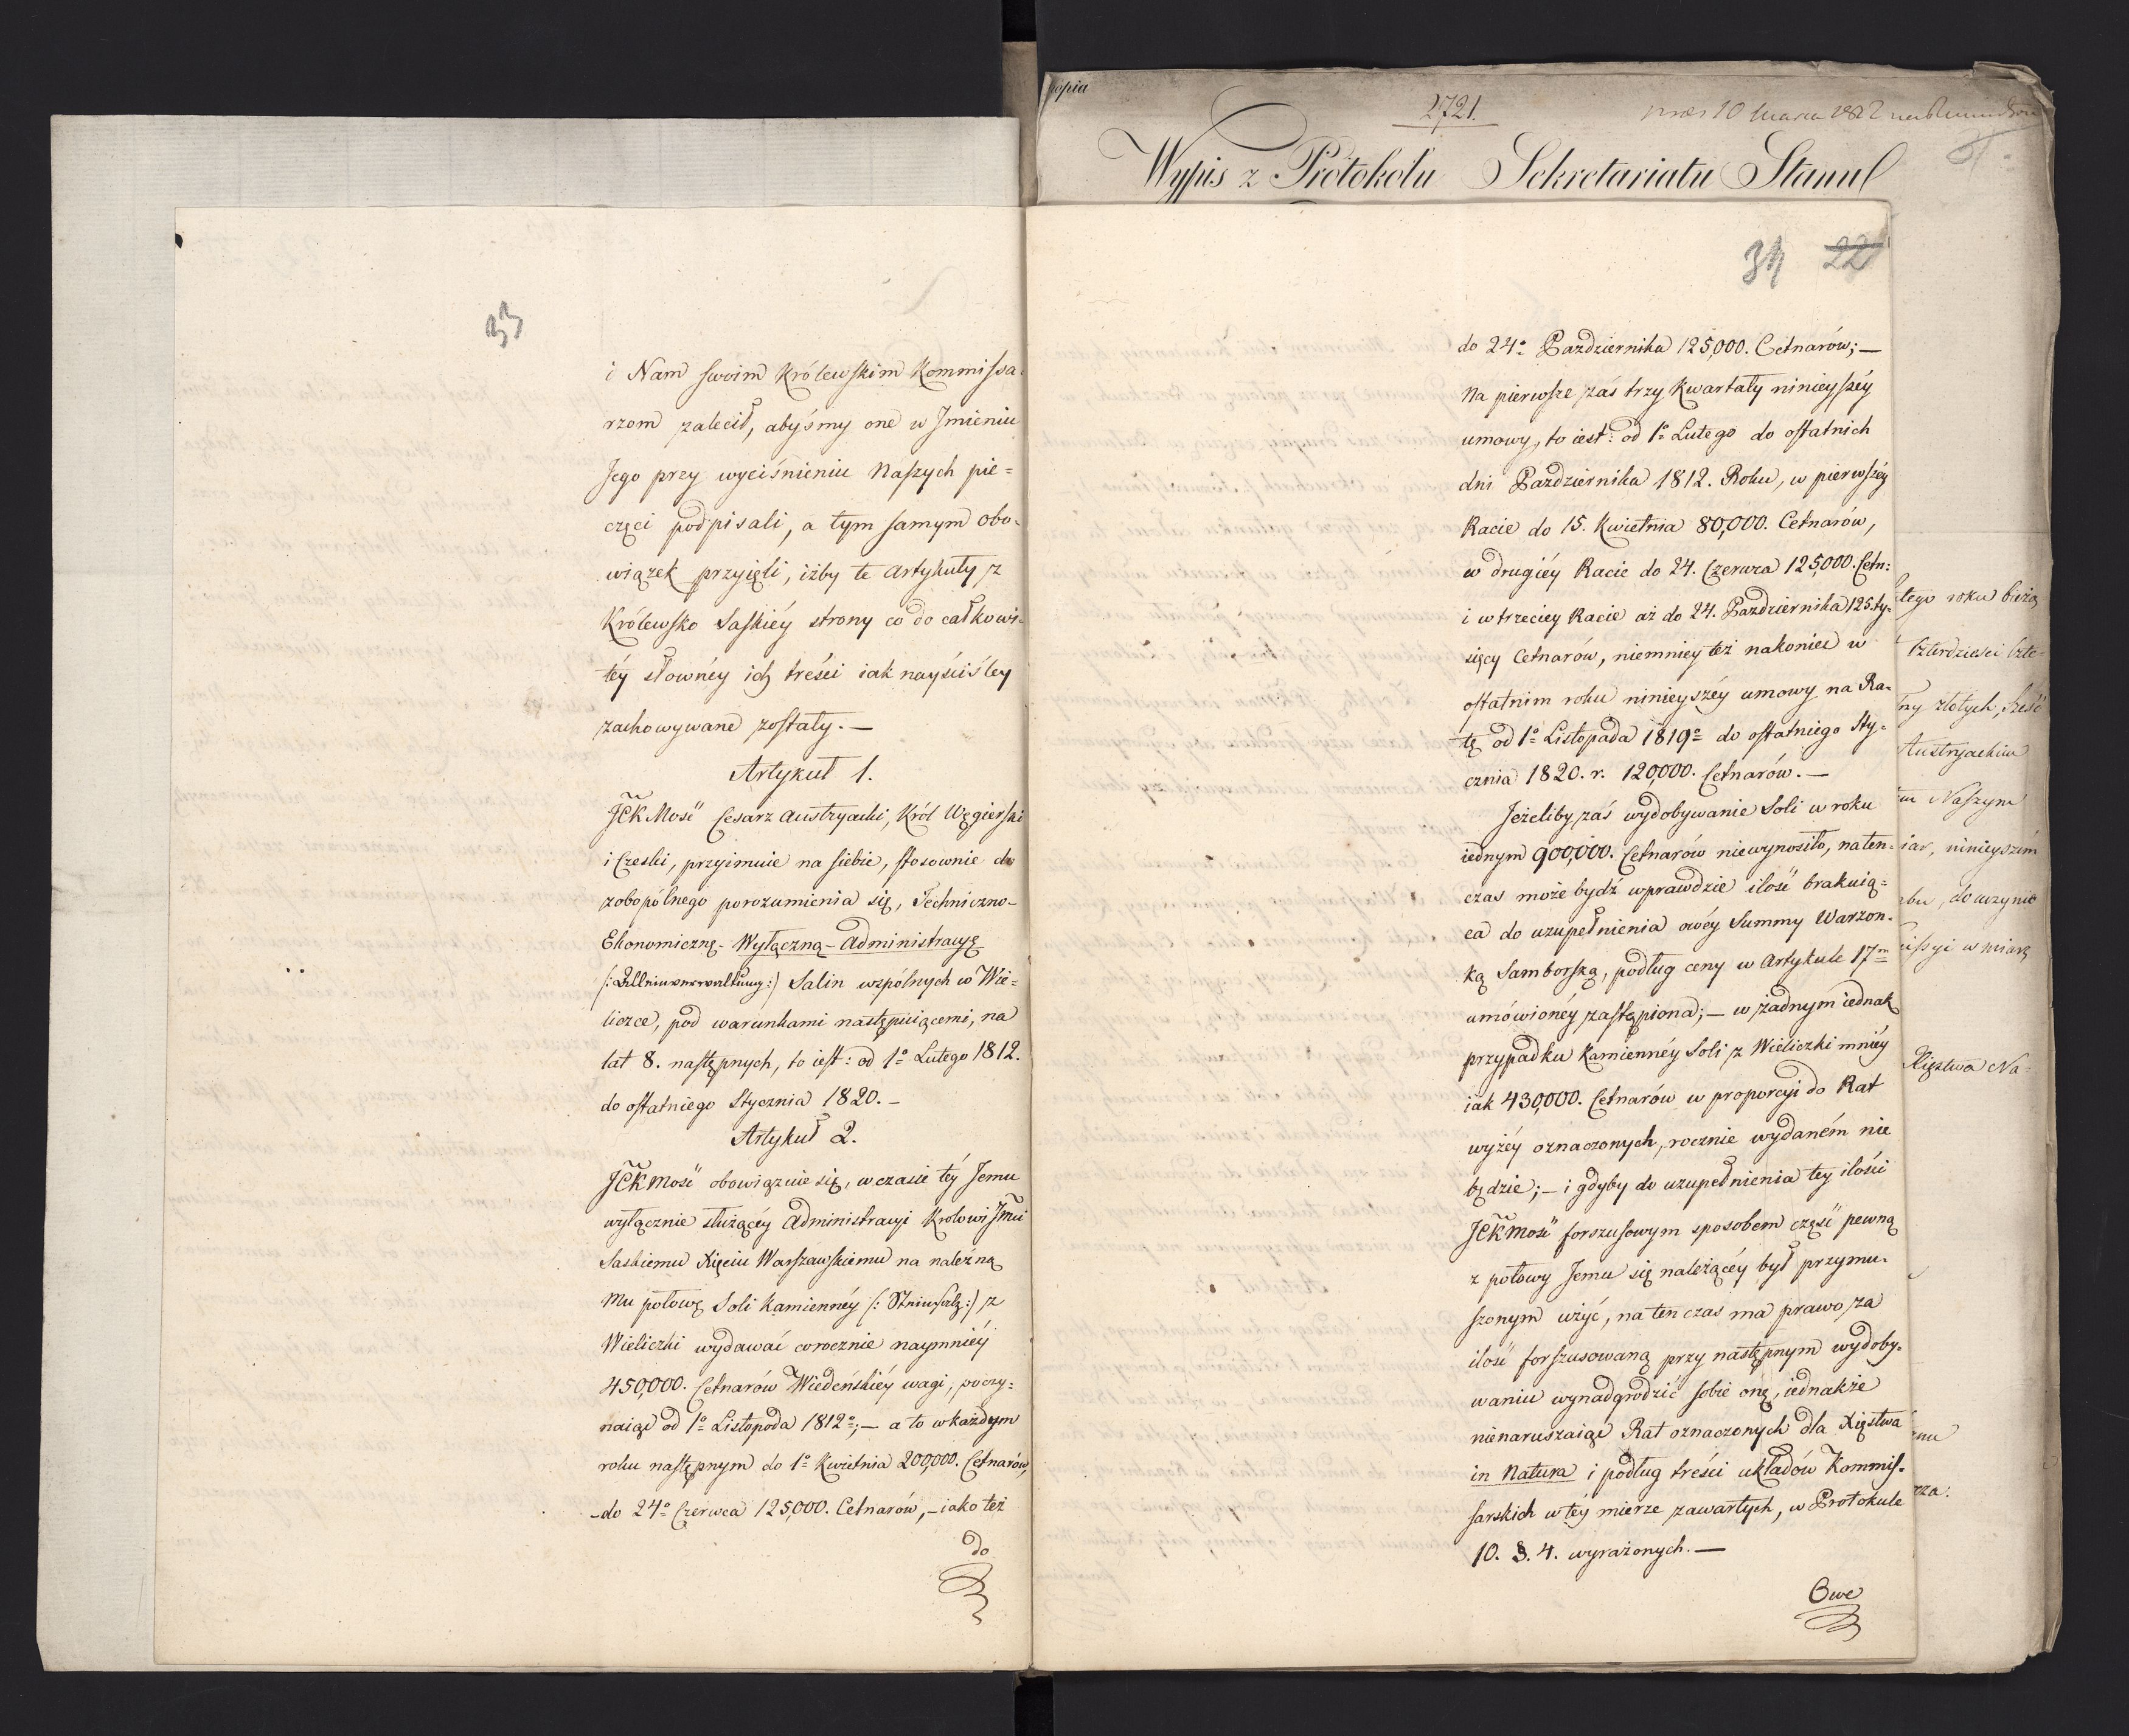 33
i Nam swoim Królewskim Kommissa-
rzom zalecił, abyśmy one w Jmieniu
Jego przy wyciśnieniu Naszych pie=
częci podpisali, a tym samym obo-
wiązek przyięli, iżby te Artykuły z
Królewsko Saskiéy strony co do całkowi-
téy słownéy ich treści iak nayściśley
zachowywane zostały. —
Artykuł 1.
JCK Mość Cesarz Austryacki, Król Węgierski
i Czeski, przyimuie na siebie, stosownie do
zobopólnego porozumienia się, Techniczno-
Ekonomiczną - Wyłączną - Administracyę
/: Alleinverwaltung :/ Salin wspólnych w Wie=
liczce, pod warunkami następuiącemi, na
lat 8. następnych, to iest: od 1o Lutego 1812.
do ostatniego Stycznia 1820. –
Artykuł 2.
JCK Mość obowiązuie się, w czasie téy Jemu
wyłącznie służącéy Administracyi Krolowi Jmci
Saskiemu Xięciu Warszawskiemu na należną
Mu połowę Soli Kamiennéy /: Steinsalz :/ z
Wieliczki wydawać corocznie naymniéy
450,000. Cetnarów Wiedeńskiéy wagi, poczy=
naiąc od 1o Listopada 1812o; — a to w każdym
roku następnym do 1o Kwietnia 200,000. Cetnarów,
- do 24o Czerwca 125,000. Cetnarów, – iako też
do
kopia
2721.
10 Marca 1812
Wypis z Protokołu Sekretariatu Stanu
34 22
do 24o Pazdziernika 125,000. Cetnarów; —
Na pierwsze zaś trzy Kwartały ninieyszéy
umowy, to iest: od 1o Lutego do ostatnich
dni Pazdziernika 1812. Roku, w pierwszéy
Racie do 15. Kwietnia 80,000. Cetnarów,
w drugiéy Racie do 24. Czerwca 125,000. Cetn:
i w trzeciey Racie aż do 24. Pazdziernika 125. ty-
sięcy Cetnarów, niemniey też nakoniec w
ostatnim roku ninieyszéy umowy na Ra-
tę od 1o Listopada 1819o do ostatniego Sty-
cznia 1820. r. 120,000. Cetnarów. —
Jeżeliby zaś wydobywanie Soli w roku
iednym 900,000. Cetnarów niewynosiło, na ten-
czas może bydź wprawdzie ilość brakuią=
ca do uzupełnienia owéy Summy Warzon-
ką Samborską, podług ceny w Artykule 17m
umówionéy zastąpiona; — w żadnym iednak
przypadku Kamiennéy Soli z Wieliczki mniéy
iak 430,000. Cetnarów w proporcyi do Rat
wyżéy oznaczonych, rocznie wydaném nie
będzie; – i gdyby do uzupełnienia tey ilości
JCK Mość forszusowym sposobem część pewną
z połowy Jemu się należącéy był przymu-
szonym użyć, na ten czas ma prawo za
ilość forszusowaną przy następnym wydoby-
waniu wynadgrodzić sobie onę, iednakże
nienaruszaiąc Rat oznaczonych dla Xięstwa
in Natura i podług treści układów Kommis-
sarskich w téy mierze zawartych, w Protokule
10. §. 4. wyrażonych. —
Owe
tego roku bieżą
czterdzieści czte-
ny złotych, sześć
Austryackim
m Naszym
iar, ninieyszém
bu, do uczynie
issyi w miarę
Xięztwa Na-
mu
rza.